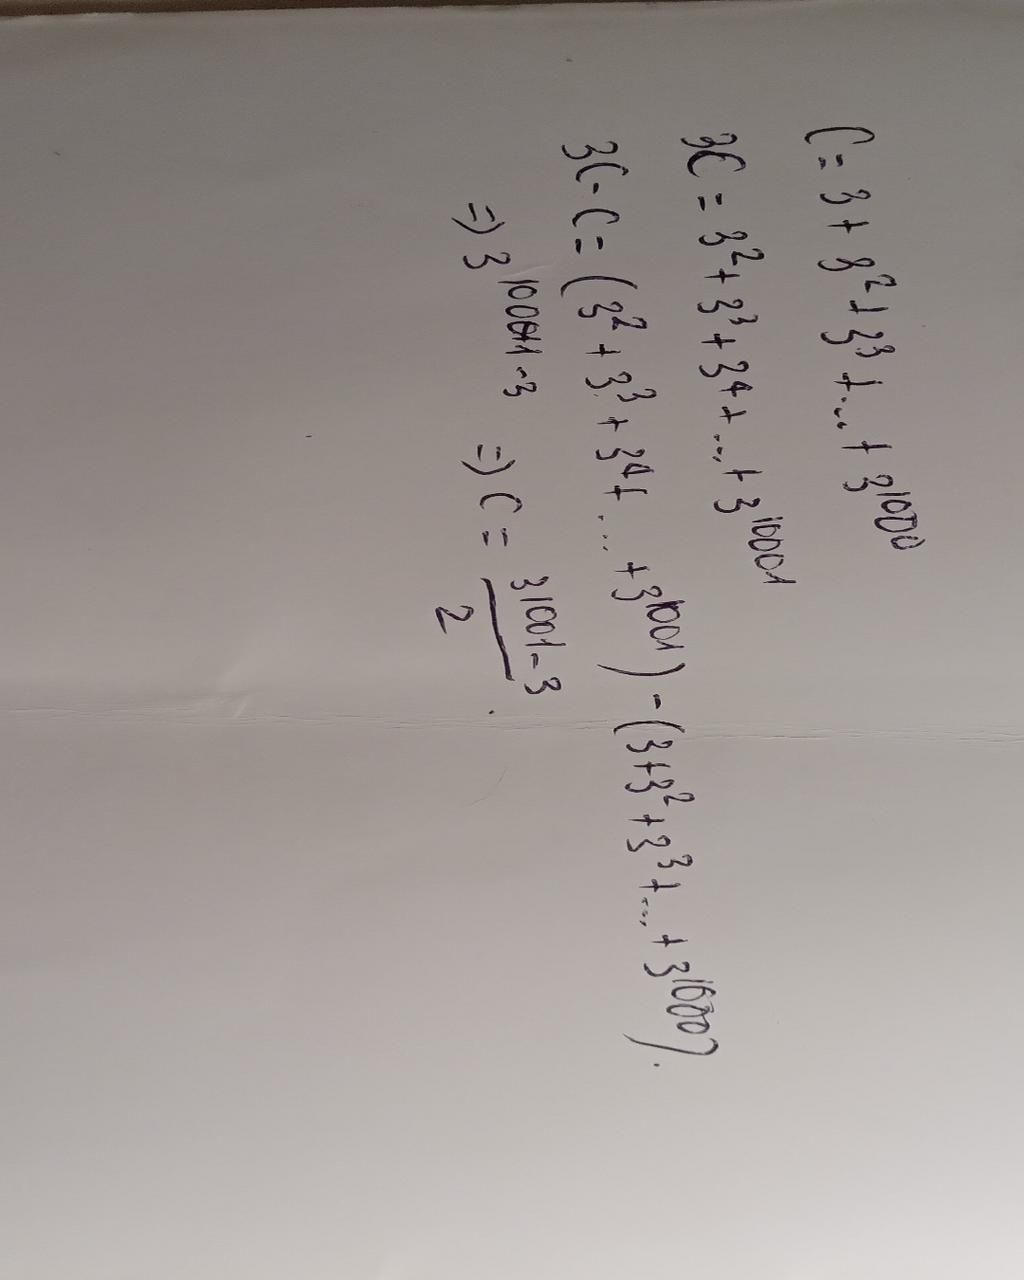 C = 3 + 3² + 3³ + ... + 3¹⁰⁰⁰
3C = 3² + 3³ + 3⁴ + ... + 3¹⁰⁰⁰¹
3C - C = (3² + 3³ + 3⁴ + ... + 3¹⁰⁰¹) - (3 + 3² + 3³ + ... + 3¹⁰⁰⁰).
=) 3¹⁰⁰¹⁻³ =) C = \frac{3¹⁰⁰¹⁻³}{2}.